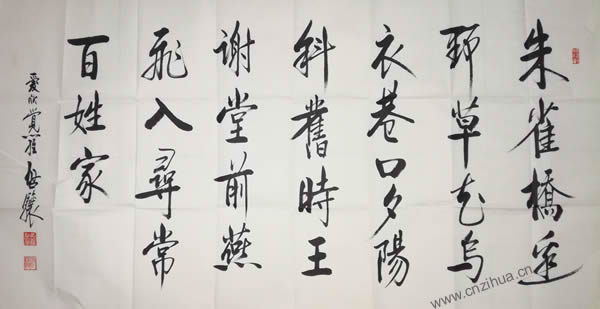 朱雀橋邊
野草花烏
衣巷口夕陽
斜舊時王
謝堂前燕
飛入尋常
百姓家
愛欣覺羅啟驤
www.cnzihua.cn